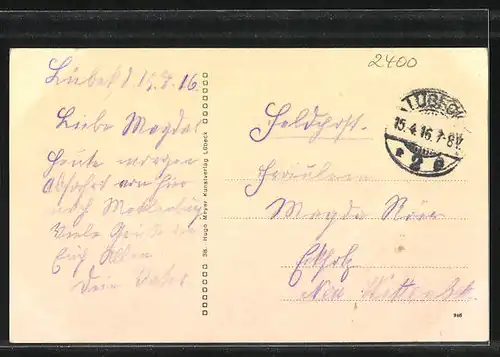 2400
Lübeck d 15.4.16.
Liebe Magda!
Heute morgen
Abfahrt von hier
nach Mecklenburg
Viele Grüße an
Euch Allen
Dein Vater
38. Hugo Meyer Kunstverlag Lübeck
Feldpost.
LÜBECK
15.4.16.7-8V.
* 2 e
Fräulein
Magda
Eckholz
Neu